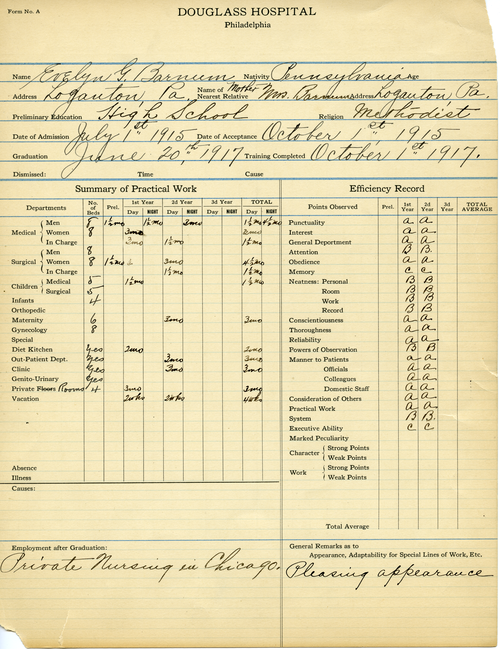 Form No. A
DOUGLASS HOSPITAL
Philadelphia
Name Evelyn G. Barnum Nativity Pennsylvania Age
Address Loganton Pa. Name of Nearest Relative Mother Mrs. Barnum Address Loganton Pa.
Preliminary Education High School Religion Methodist
Date of Admission July 1st 1915 Date of Acceptance October 1st 1915
Graduation June 20th 1917 Training Completed October 1st 1917.
Dismissed: Time Cause
Summary of Practical Work
Departments No. of Beds Prel. 1st Year 2d Year 3d Year TOTAL
Day NIGHT Day NIGHT Day NIGHT Day NIGHT
Medical Men 8 1½mo 1½mo 3mo 1½mo 4½mo
Women 8 3mo 2mo
In Charge 3mo 1½mo 1½mo
Surgical Men 8
Women 8 1½mo 3mo 4½mo
In Charge 1½mo 1½mo
Children Medical 5 1½mo 1½mo
Surgical 5
Infants 4
Orthopedic
Maternity 6 3mo 3mo
Gynecology 8
Special
Diet Kitchen Yes 2mo 2mo
Out-Patient Dept. Yes 3mo 3mo
Clinic Yes 3mo 3mo
Genito-Urinary Yes
Private Floors Rooms 4 3mo 3mo
Vacation 2wks 2wks 4wks
Absence
Illness
Causes:
Employment after Graduation:
Private Nursing in Chicago.
Efficiency Record
Points Observed Prel. 1st Year 2d Year 3d Year TOTAL AVERAGE
Punctuality a a
Interest a a
General Department a a
Attention B B.
Obedience a a
Memory c c
Neatness: Personal B B
Room B B
Work B B
Record B B
Conscientiousness a a
Thoroughness a a
Reliability a a
Powers of Observation B B
Manner to Patients a a
Officials a a
Colleagues a a
Domestic Staff a a
Consideration of Others a a
Practical Work a a
System B B.
Executive Ability c c
Marked Peculiarity
Character Strong Points
Weak Points
Work Strong Points
Weak Points
Total Average
General Remarks as to
Appearance, Adaptability for Special Lines of Work, Etc.
Pleasing appearance